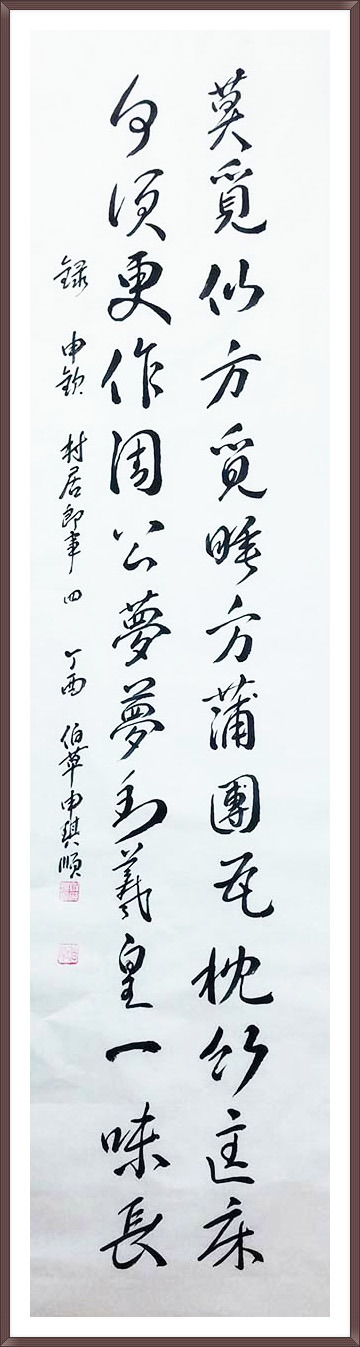 莫覓仙方覓睡方蒲團瓦枕竹匡床
何須更作周公夢夢到羲皇一味長
錄 申欽 村居即事 四 丁酉 伯草申琪順